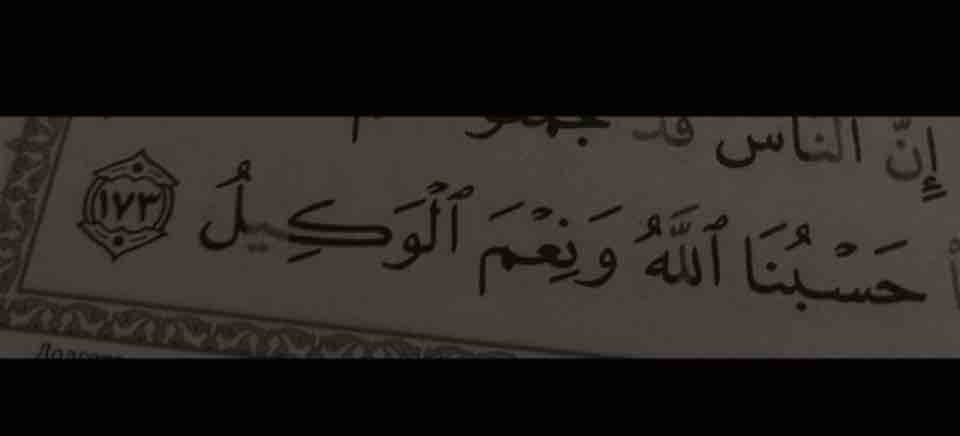 إِنَّ ٱلنَّاسَ قَدْ جَمَعُوا۟
حَسْبُنَا ٱللَّهُ وَنِعْمَ ٱلْوَكِيلُ ١٧٣